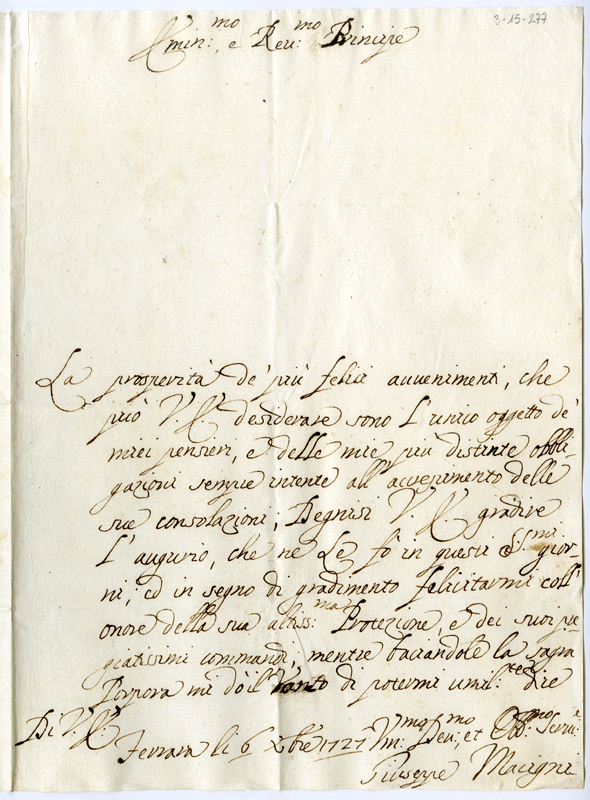 3-15-277
Emin:mo, e Reu:mo Principe
La prosperità de' più felici auuenimenti, che
può V. E. desiderare sono l'unico oggetto de'
miei pensieri, e delle mie più distinte obbli-
gazioni sempre intente all'accrescimento delle
sue consolazioni; Degnisi V. E. gradire
L'augurio, che ne Le fò in questi SSmi gior-
ni, ed in segno di gradimento felicitarmi coll'
onore della sua altiss:ma Protezione, e dei suoi pre-
giatissimi commandi, mentre baciandole la sagra
Porpora mi dò il vanto di potermi umil:te dire
Di V. E.
Ferrara li 6 Xbre 1727 Vm:mo Deu:mo et Obb:mo Seru:e
Giuseppe Macigni